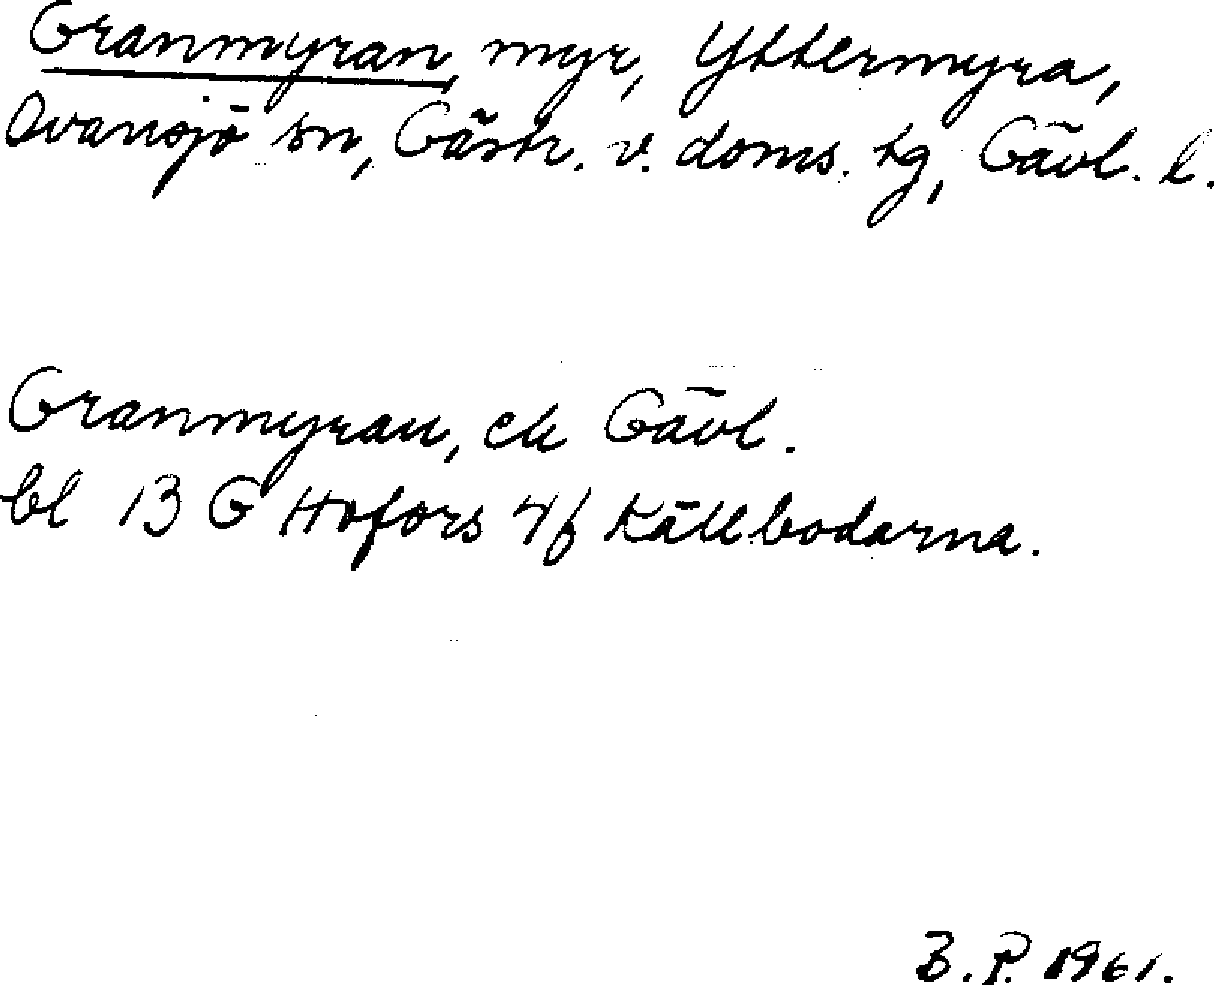 Granmyran, myr, Yttermyra,
Ovansjö sn, Gästr. v. doms. tg, Gävl. l.
Granmyran, ek Gävl.
bl 13 G Hofors 4f Källbodarna.
B.P. 1961.